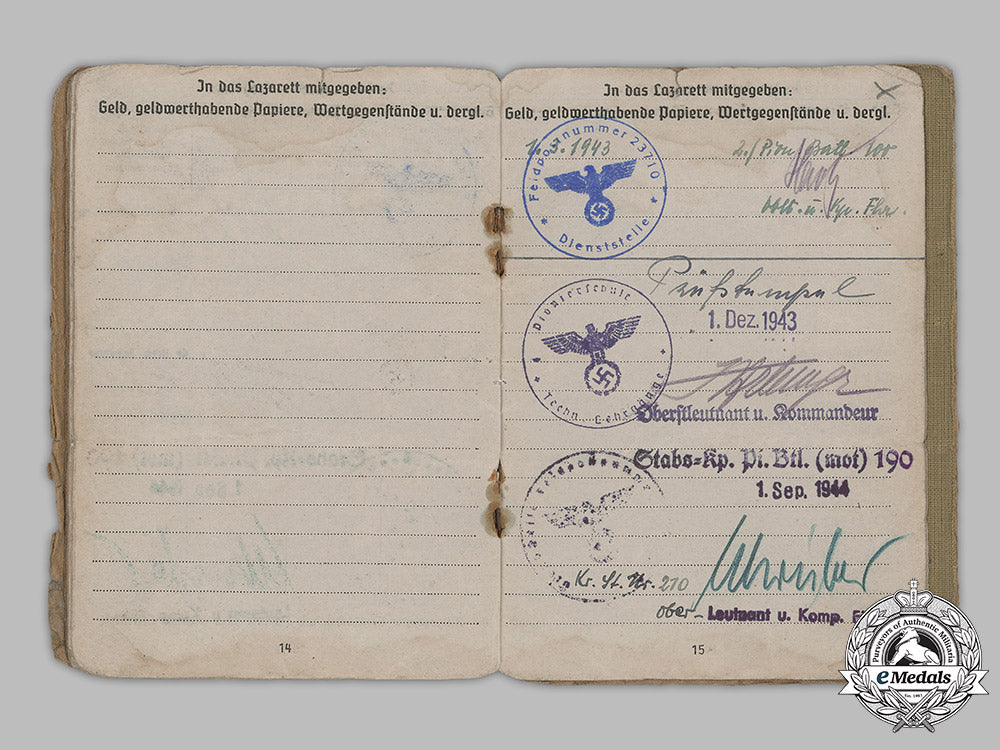 In das Lazarett mitgegeben:
Geld, geldwerthabende Papiere, Wertgegenstände u. dergl.
14
In das Lazarett mitgegeben:
Geld, geldwerthabende Papiere, Wertgegenstände u. dergl.
1943
2./Pion. Batl.
Feldpostnummer 23710
* Dienststelle *
u. Kp. Fhr.
Prüfstempel
1. Dez. 1943
Pionierschule
Techn. Lehrgänge
Oberstleutnant u. Kommandeur
Stabs-Kp. Pi. Btl. (mot) 190
1. Sep. 1944
Kr. St. Nr. 210
Ober- Leutnant u. Komp.
15
Purveyors of Authentic Militaria
eMedals